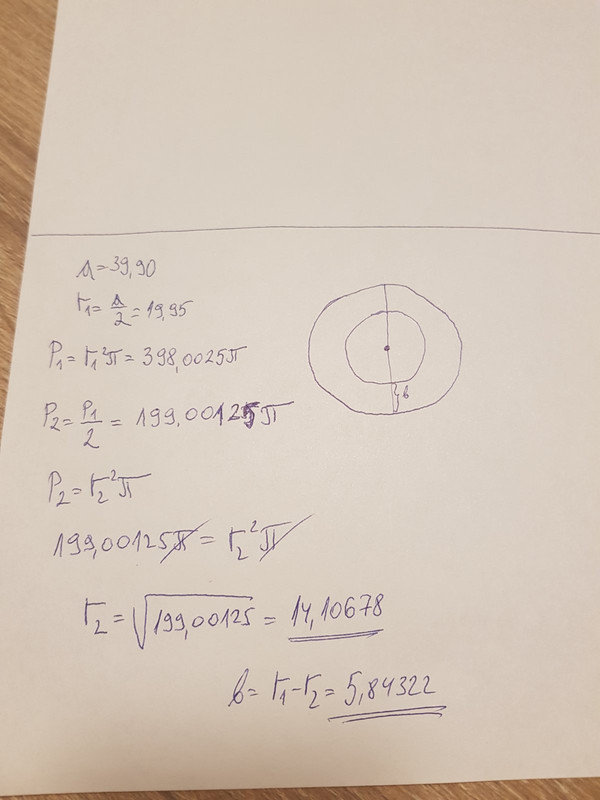 d=39,90
r₁=d/2=19,95
P₁=r₁²π=398,0025π
P₂=P₁/2=199,00125π
P₂=r₂²π
199,00125π=r₂²π
r₂=√199,00125=14,10678
b
b=r₁-r₂=5,84322